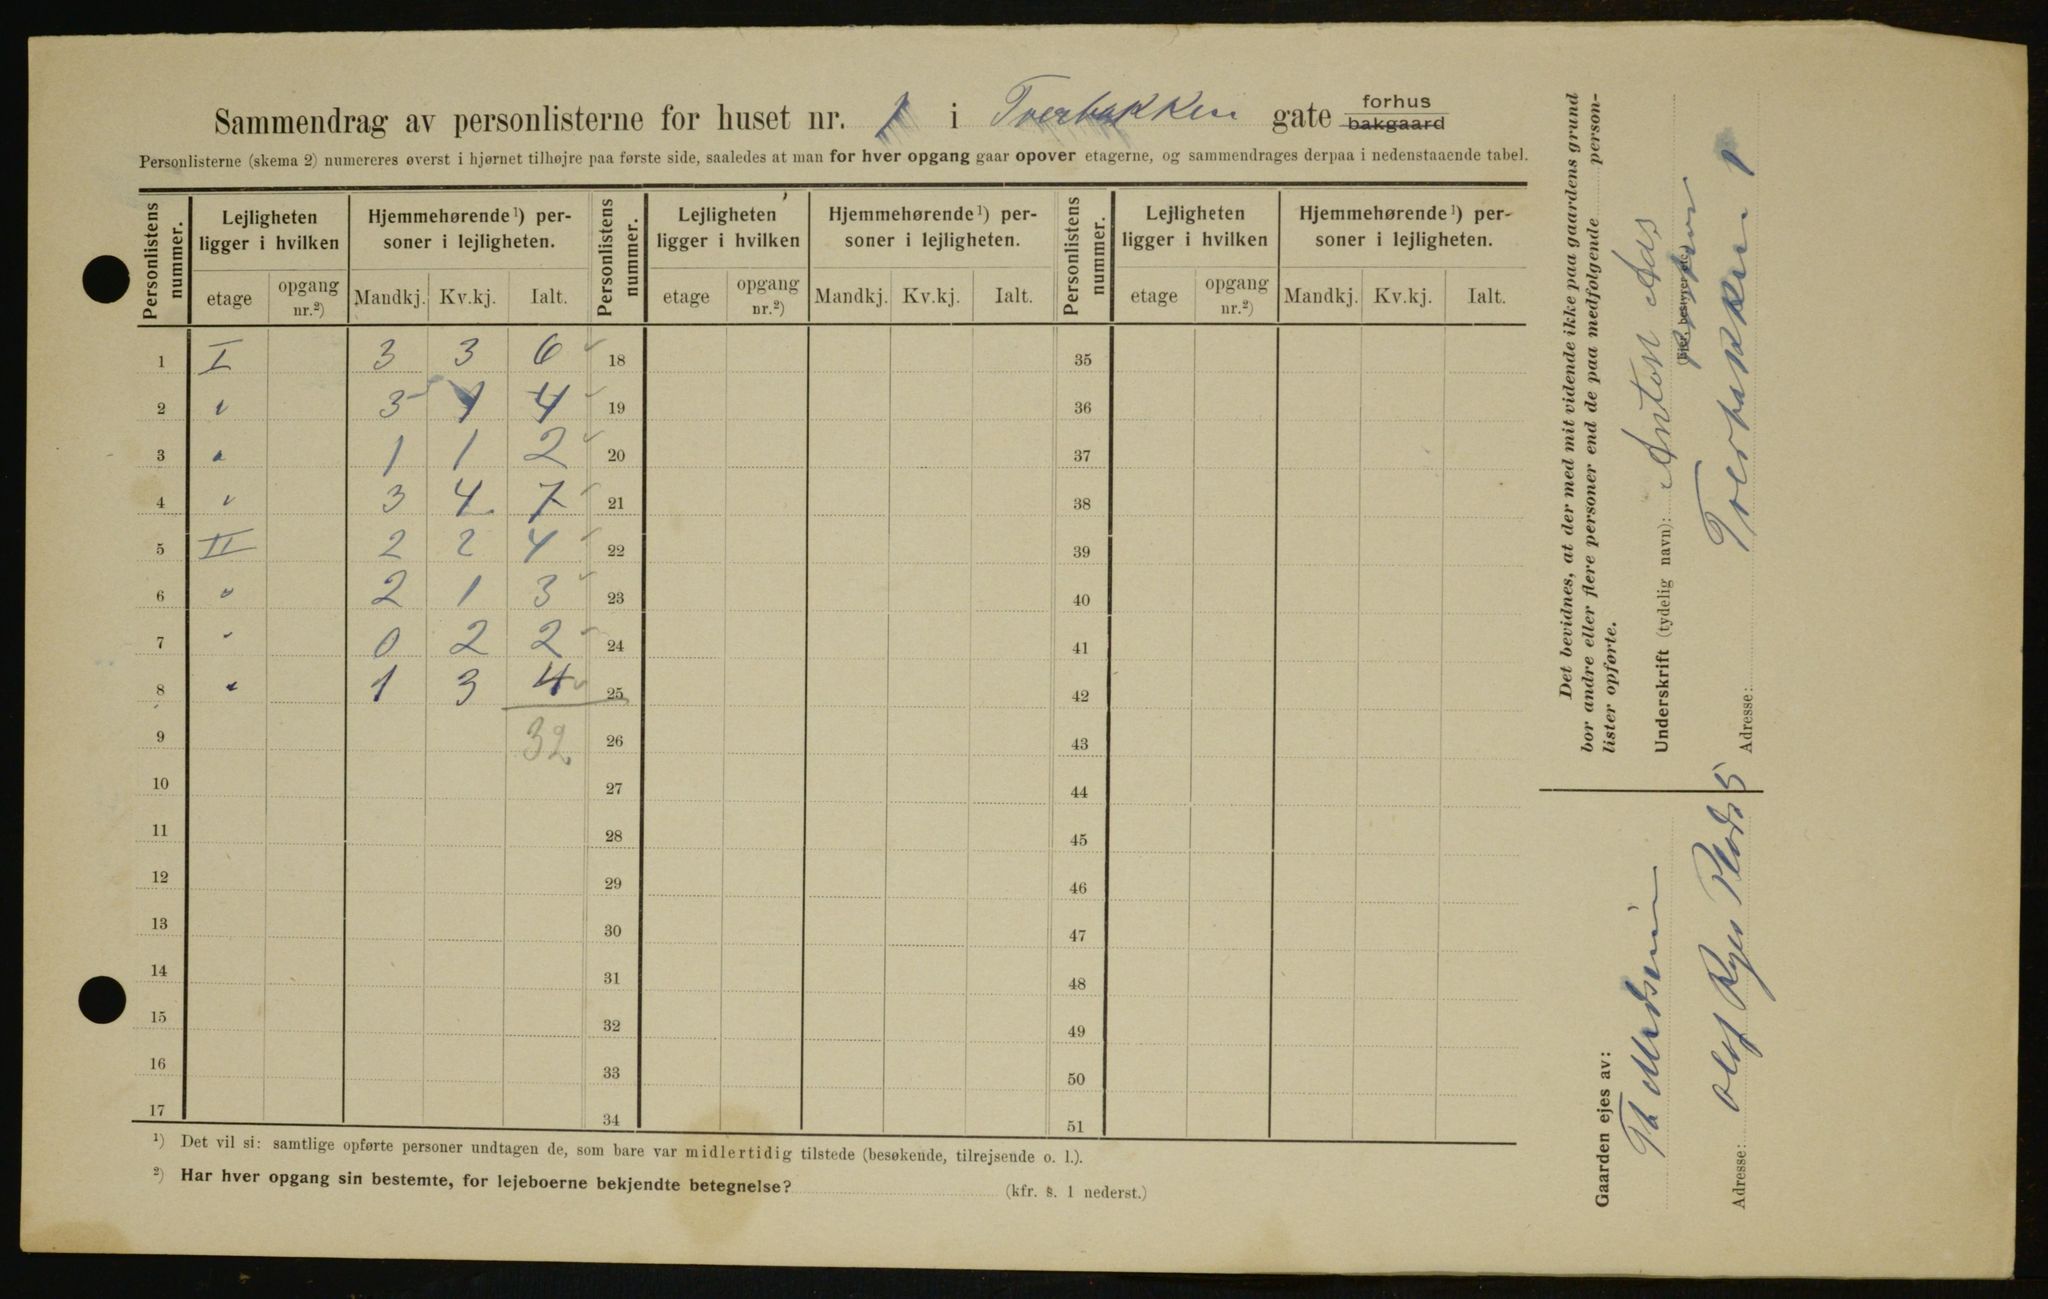 Sammendrag av personlisterne for huset nr. 1 i Tverbakken gate forhus
bakgaard
Personlisterne (skema 2) numereres øverst i hjørnet tilhøjre paa første side, saaledes at man for hver opgang gaar opover etagerne, og sammendrages derpaa i nedenstaaende tabel.
Personlistens nummer. Lejligheten ligger i hvilken Hjemmehørende ¹) personer i lejligheten. Personlistens nummer. Lejligheten ligger i hvilken Hjemmehørende ¹) personer i lejligheten. Personlistens nummer. Lejligheten ligger i hvilken Hjemmehørende ¹) personer i lejligheten.
etage opgang nr.²) Mandkj. Kv.kj. Ialt. etage opgang nr.²) Mandkj. Kv.kj. Ialt. etage opgang nr.²) Mandkj. Kv.kj. Ialt.
1 I 3 3 6 18 35
2 " 3 1 4 19 36
3 " 1 1 2 20 37
4 " 3 4 7 21 38
5 II 2 2 4 22 39
6 " 2 1 3 23 40
7 " 0 2 2 24 41
8 " 1 3 4 25 42
9 32 26 43
10 27 44
11 28 45
12 29 46
13 30 47
14 31 48
15 32 49
16 33 50
17 34 51
¹) Det vil si: samtlige opførte personer undtagen de, som bare var midlertidig tilstede (besøkende, tilrejsende o. l.).
²) Har hver opgang sin bestemte, for lejeboerne bekjendte betegnelse? (kfr. s. 1 nederst.)
Det bevidnes, at der med mit vidende ikke paa gaardens grund
bor andre eller flere personer end de paa medfølgende person-
lister opførte.
Underskrift (tydelig navn): Anton Aas
(Ejer, bestyrer etc.)
Adresse: Tverbakken 1
Gaarden ejes av:
Th Madsen
Adresse: Oluf Ryes Plads 5